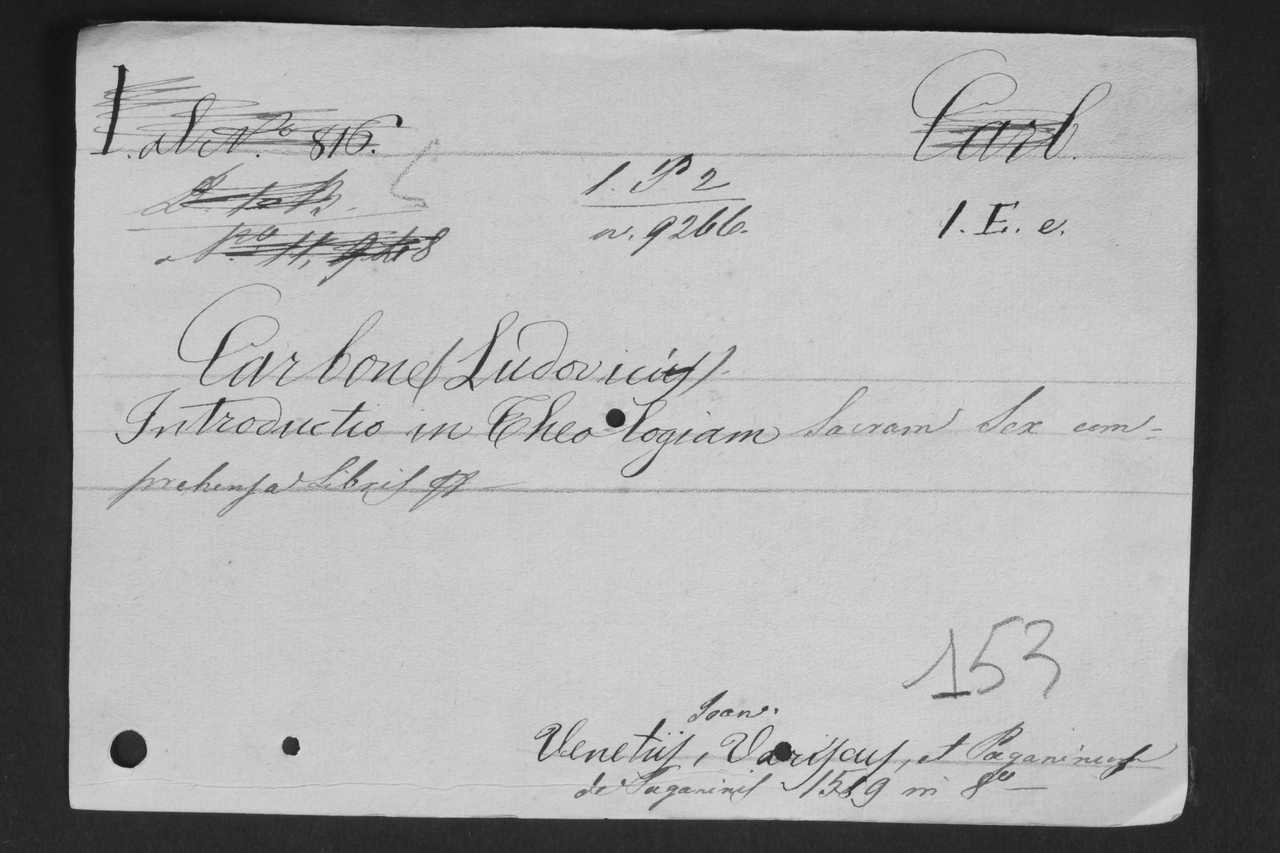 I. ab N.º 816.
Carb.
1. P 2
n. 9266.
1. E. e.
Carbones Ludovicus.
Introductio in Theologiam Sacram Sex com-
prehensa Libris
153
Joan.
Venetiis, Variscus, et Paganinus
de Paganinis 1589 in 8º